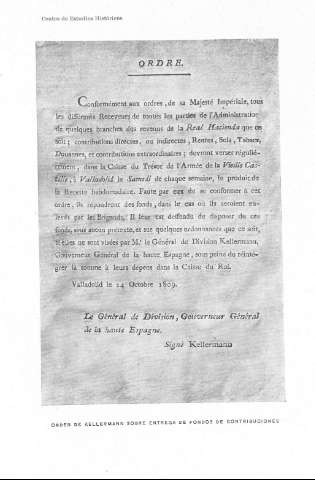 Centro de Estudios Históricos
ORDRE.
Conformément aux ordres, de sa Majesté Impériale, tous
les différens Receveurs de toutes les parties de l'Administration
de quelques branches des revenus de la Real Hacienda que ce
soit; contributions directes, ou indirectes, Rentes, Sels, Tabacs,
Douannes, et contributions extraordinaires; devront verser régulié-
rement, dans la Caisse du Trésor de l'Armée de la Vieille Cas-
tille, à Valladolid, le Samedi de chaque semaine, le produit de
la Recette hebdomadaire. Faute par eux de se conformer à cet
ordre, ils répondront des fonds, dans le cas où ils seroient en-
levés par les Brigands. Il leur est deffendu de disposer de ces
fonds, sous aucun prétexte, et sur quelques ordonnances que ce soit,
si elles ne sont visées par M.r le Général de Division Kellermann,
Gouverneur Général de la haute Espagne, sous peine de réinté-
grer la somme à leurs dépens dans la Caisse du Roi.
Valladolid le 24 Octobre 1809.
Le Général de Division, Gouverneur Général
de la haute Espagne.
Signé Kellermann
ORDEN DE KELLERMANN SOBRE ENTREGA DE FONDOS DE CONTRIBUCIONES